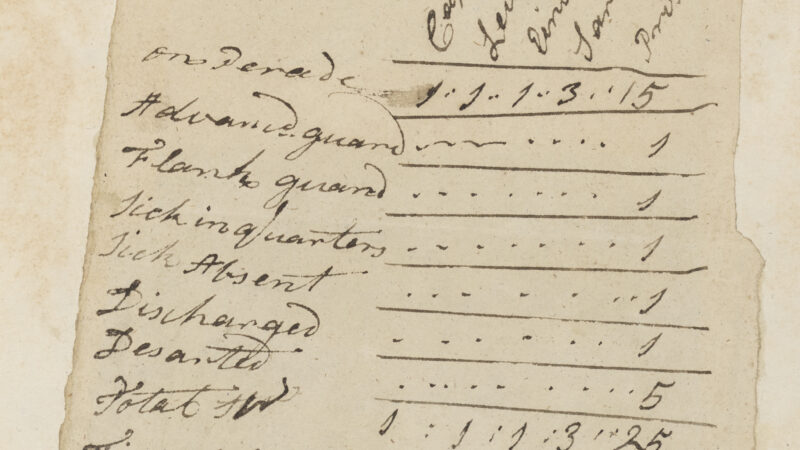 Cap
Leu
Ein
Sar
Priv
on Perade 1 : 1 .. 1 .. 3 .. 15
Advance guard 1
Flank guard 1
Sick in quarters 1
Sick Absent 1
Discharged 1
Desarted 5
Total 1 : 1 : 1 : 3 : 25